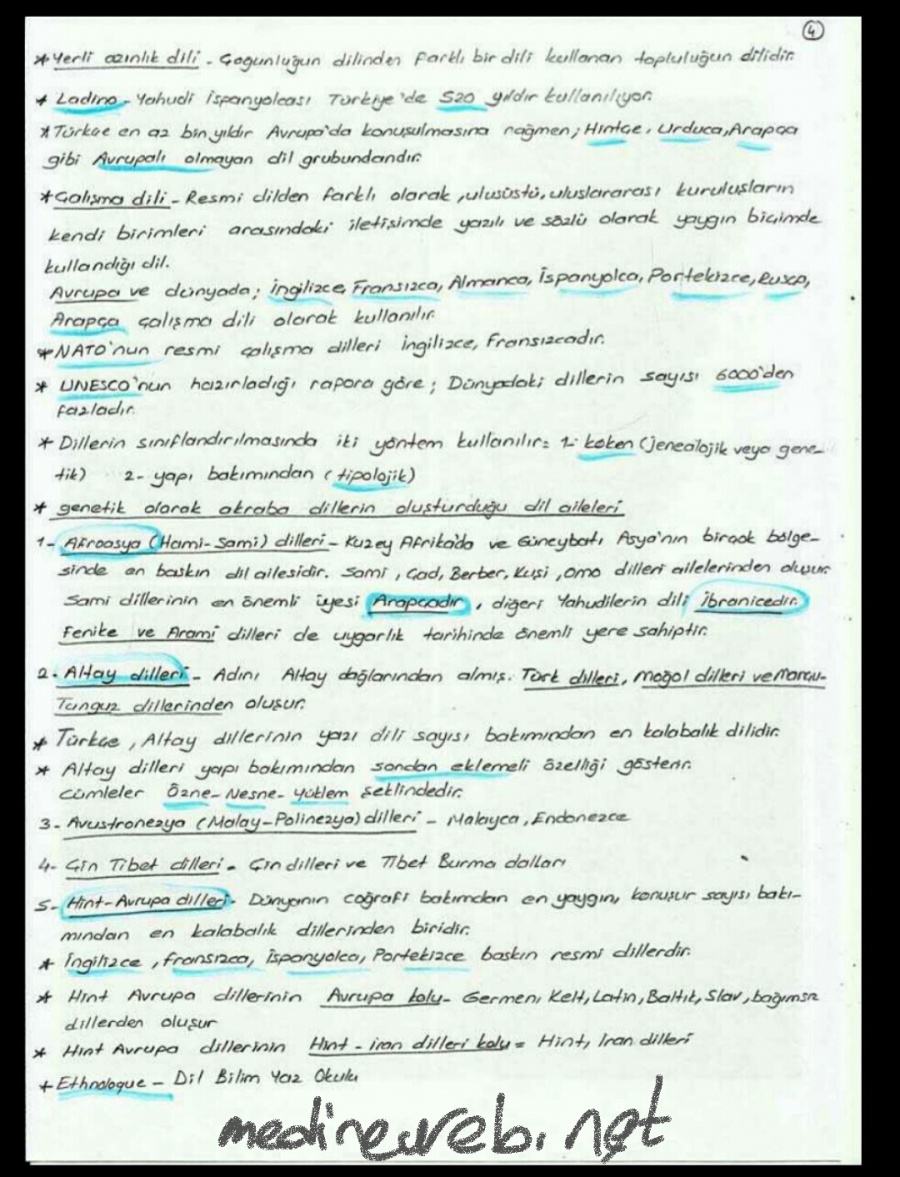 4
* Yerli azınlık dili - Çoğunluğun dilinden farklı bir dili kullanan topluluğun dilidir.
* Ladino - Yahudi İspanyolcası Türkiye'de 520 yıldır kullanılıyor.
* Türkçe en az bin yıldır Avrupa'da konuşulmasına rağmen; Hintçe, Urduca, Arapça
gibi Avrupalı olmayan dil grubundandır.
* Çalışma dili - Resmi dilden farklı olarak, ulusüstü, uluslararası kuruluşların
kendi birimleri arasındaki iletişimde yazılı ve sözlü olarak yaygın biçimde
kullandığı dil.
Avrupa ve dünyada; İngilizce, Fransızca, Almanca, İspanyolca, Portekizce, Rusça,
Arapça çalışma dili olarak kullanılır.
* NATO'nun resmi çalışma dilleri İngilizce, Fransızcadır.
* UNESCO'nun hazırladığı rapora göre; Dünyadaki dillerin sayısı 6000'den
fazladır.
* Dillerin sınıflandırılmasında iki yöntem kullanılır= 1- köken (jenealojik veya gene-
tik) 2- yapı bakımından (tipolojik)
* genetik olarak akraba dillerin oluşturduğu dil aileleri
1- Afroasya (Hami-Sami) dilleri - Kuzey Afrika'da ve Güneybatı Asya'nın birçok bölge-
sinde en baskın dil ailesidir. Sami, Çad, Berber, Kuşi, Omo dilleri ailelerinden oluşur.
Sami dillerinin en önemli üyesi Arapçadır, diğeri Yahudilerin dili İbranicedir.
Fenike ve Arami dilleri de uygarlık tarihinde önemli yere sahiptir.
2- Altay dilleri - Adını Altay dağlarından almış. Türk dilleri, Moğol dilleri ve Mançu-
Tunguz dillerinden oluşur.
* Türkçe, Altay dillerinin yazı dili sayısı bakımından en kalabalık dilidir.
* Altay dilleri yapı bakımından sondan eklemeli özelliği gösterir.
Cümleler Özne-Nesne-Yüklem şeklindedir.
3- Avustronezya (Malay-Polinezya) dilleri - Malayca, Endonezce
4- Çin Tibet dilleri - Çin dilleri ve Tibet Burma dalları
5- Hint-Avrupa dilleri - Dünyanın coğrafi bakımdan en yaygın, konuşur sayısı bakı-
mından en kalabalık dillerinden biridir.
* İngilizce, Fransızca, İspanyolca, Portekizce baskın resmi dillerdir.
* Hint Avrupa dillerinin Avrupa kolu- Germen, Kelt, Latin, Baltık, Slav, bağımsız
dillerden oluşur
* Hint Avrupa dillerinin Hint-İran dilleri kolu = Hint, İran dilleri
+ Ethnologue - Dil Bilim Yaz Okulu
medineweb.net